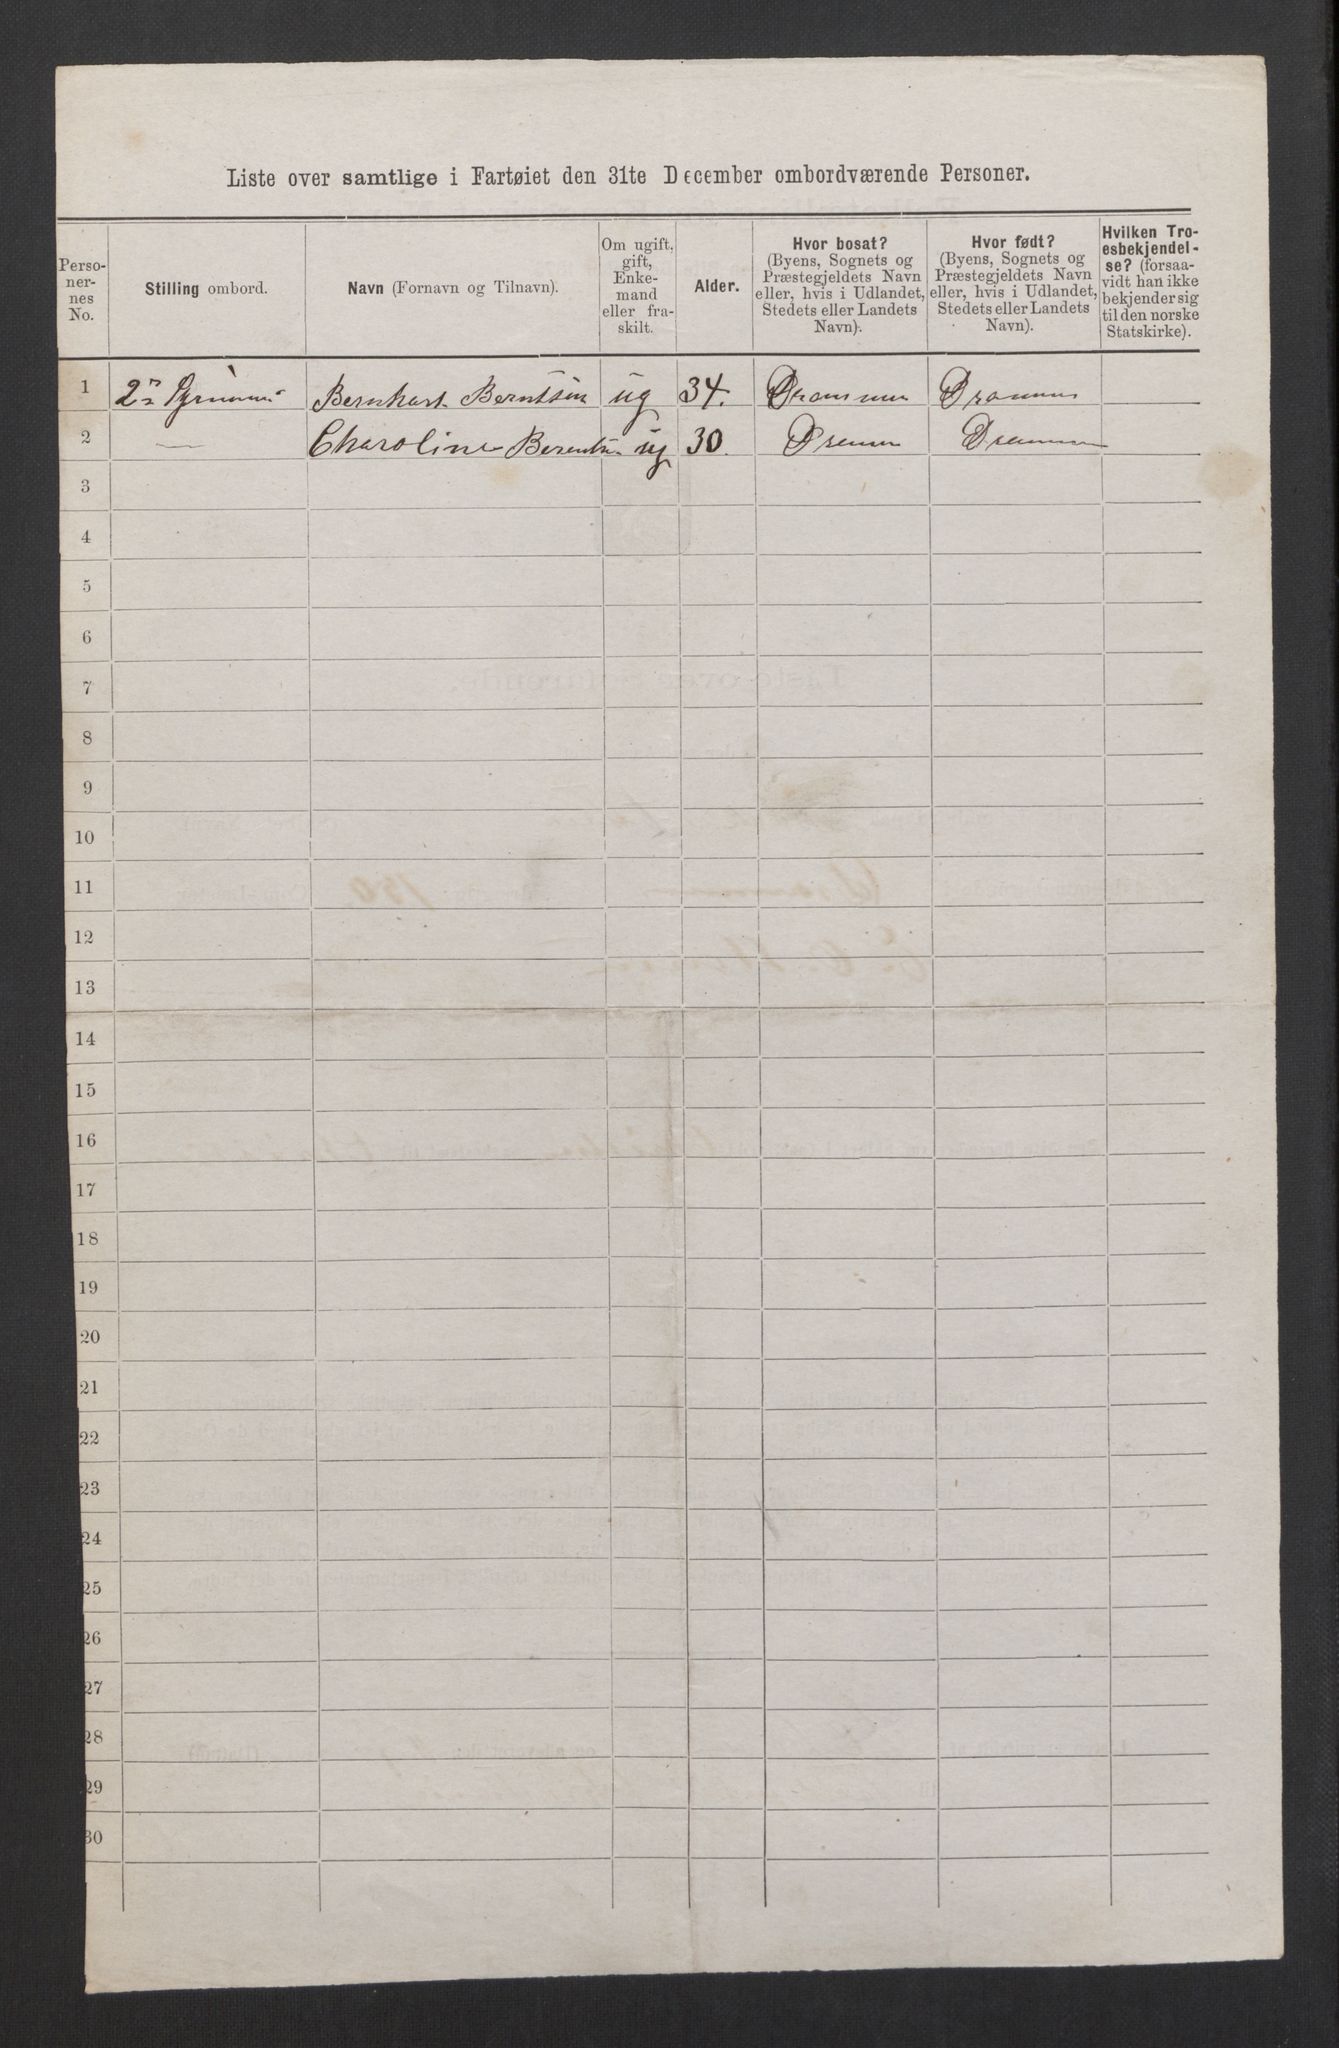 Liste over samtlige i Fartøiet den 31te December ombordværende Personer.
Perso-
ner-
nes
No.
Stilling ombord.
Navn (Fornavn og Tilnavn).
Om ugift,
gift,
Enke-
mand
eller fra-
skilt.
Alder.
Hvor bosat?
(Byens, Sognets og
Præstegjeldets Navn
eller, hvis i Udlandet,
Stedets eller Landets
Navn).
Hvor født?
(Byens, Sognets og
Præstegjeldets Navn
eller, hvis i Udlandet,
Stedets eller Landets
Navn).
Hvilken Tro-
esbekjendel-
se? (forsaa-
vidt han ikke
bekjender sig
til den norske
Statskirke).
1 Bernhart Berntsen ug 34. Drammen Drammen
2 — Charoline Berentsen ug 30. Drammen Drammen
3
4
5
6
7
8
9
10
11
12
13
14
15
16
17
18
19
20
21
22
23
24
25
26
27
28
29
30